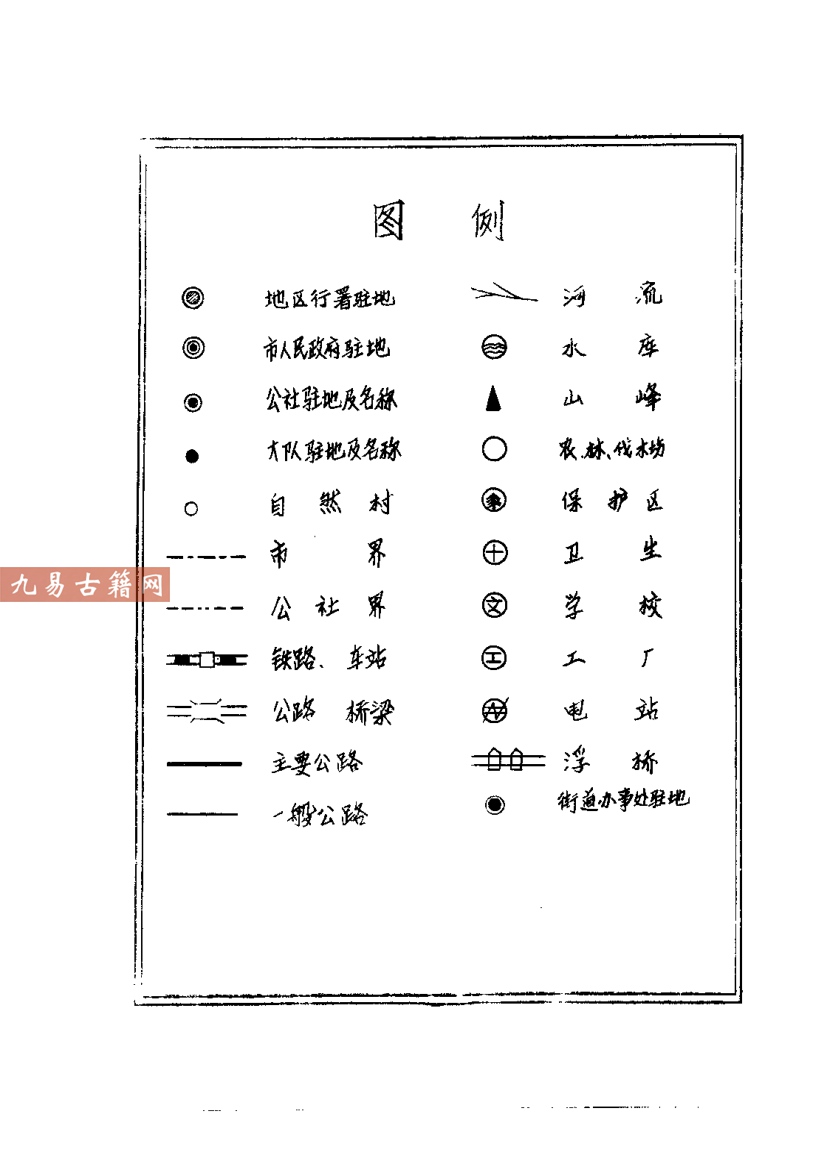 图 例
地区行署驻地
市人民政府驻地
公社驻地及名称
大队驻地及名称
自然村
市界
公社界
铁路、车站
公路 桥梁
主要公路
一般公路
河流
水库
山峰
农、林、伐木场
保护区
卫生
文 学校
工 工厂
电站
浮桥
街道办事处驻地
九易古籍网